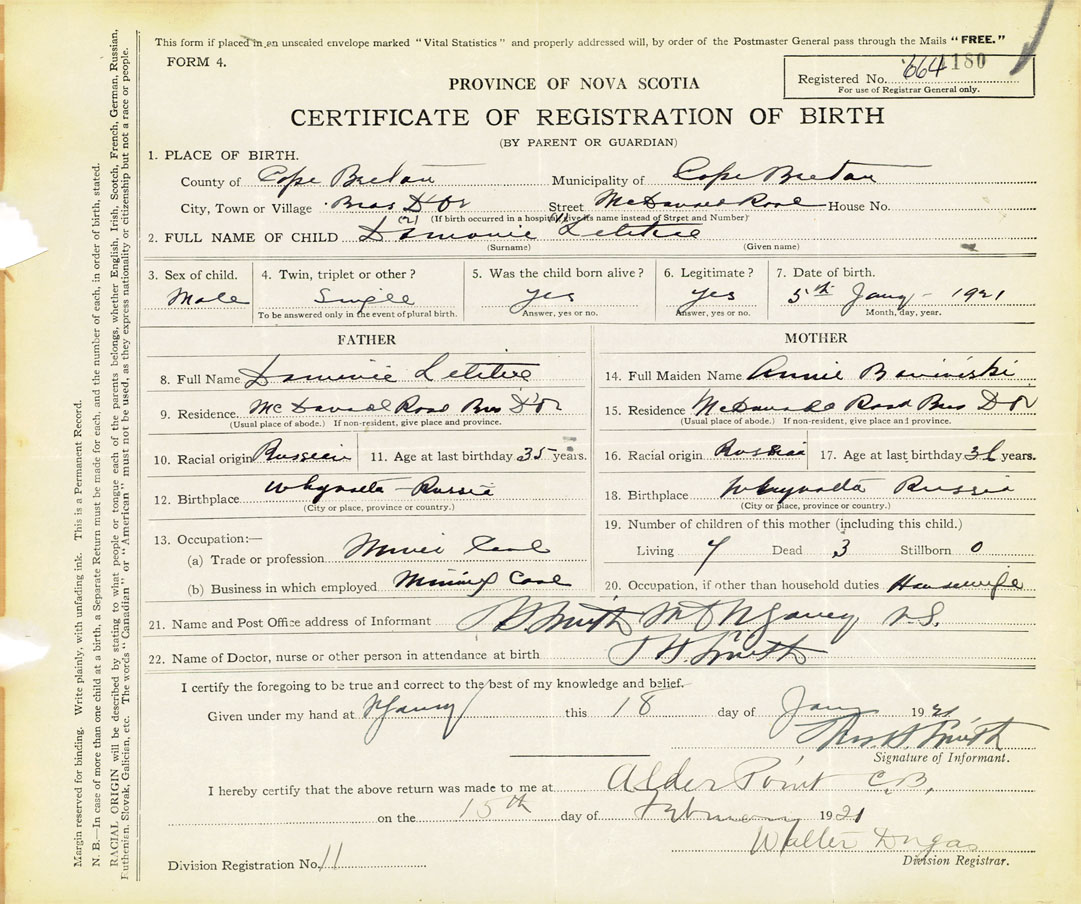 This form if placed in an unsealed envelope marked "Vital Statistics" and properly addressed will, by order of the Postmaster General pass through the Mails "FREE."
FORM 4.
664 1180
Registered No.
For use of Registrar General only.
PROVINCE OF NOVA SCOTIA
CERTIFICATE OF REGISTRATION OF BIRTH
(BY PARENT OR GUARDIAN)
1. PLACE OF BIRTH.
County of Cape Breton Municipality of Cape Breton
City, Town or Village Bras D'Or Street McDonald Road House No.
(If birth occurred in a hospital give its name instead of Street and Number)
2. FULL NAME OF CHILD
(Surname) (Given name)
3. Sex of child. 4. Twin, triplet or other? 5. Was the child born alive? 6. Legitimate? 7. Date of birth.
Male Single yes yes 5th Jany - 1921
To be answered only in the event of plural birth. Answer, yes or no. Answer, yes or no. Month, day, year.
FATHER MOTHER
8. Full Name 14. Full Maiden Name Annie
9. Residence. McDonald Road Bras D'Or 15. Residence McDonald Road Bras D'Or
(Usual place of abode.) If non-resident, give place and province. (Usual place of abode.) If non-resident, give place and province.
10. Racial origin Russian 11. Age at last birthday 35 years. 16. Racial origin Russian 17. Age at last birthday years.
12. Birthplace Russia 18. Birthplace Russia
(City or place, province or country.) (City or place, province or country.)
19. Number of children of this mother (including this child.)
13. Occupation:—
(a) Trade or profession Living 7 Dead 3 Stillborn 0
(b) Business in which employed Mining Coal 20. Occupation, if other than household duties Housewife
21. Name and Post Office address of Informant N.S.
22. Name of Doctor, nurse or other person in attendance at birth Smith
I certify the foregoing to be true and correct to the best of my knowledge and belief.
Given under my hand at this 18 day of Jany 1921
Smith
Signature of Informant.
I hereby certify that the above return was made to me at Alder Point C.B.
on the 15th day of February 1921
Walter Dugas
Division Registrar.
Division Registration No. 11
Margin reserved for binding. Write plainly, with unfading ink. This is a Permanent Record.
N. B.—In case of more than one child at a birth, a Separate Return must be made for each, and the number of each, in order of birth, stated.
RACIAL ORIGIN will be described by stating to what people or tongue each of the parents belongs, whether English, Irish, Scotch, French, German, Russian,
Ruthenian, Slovak, Galician, etc. The words "Canadian" or "American" must not be used, as they express nationality or citizenship but not a race or people.